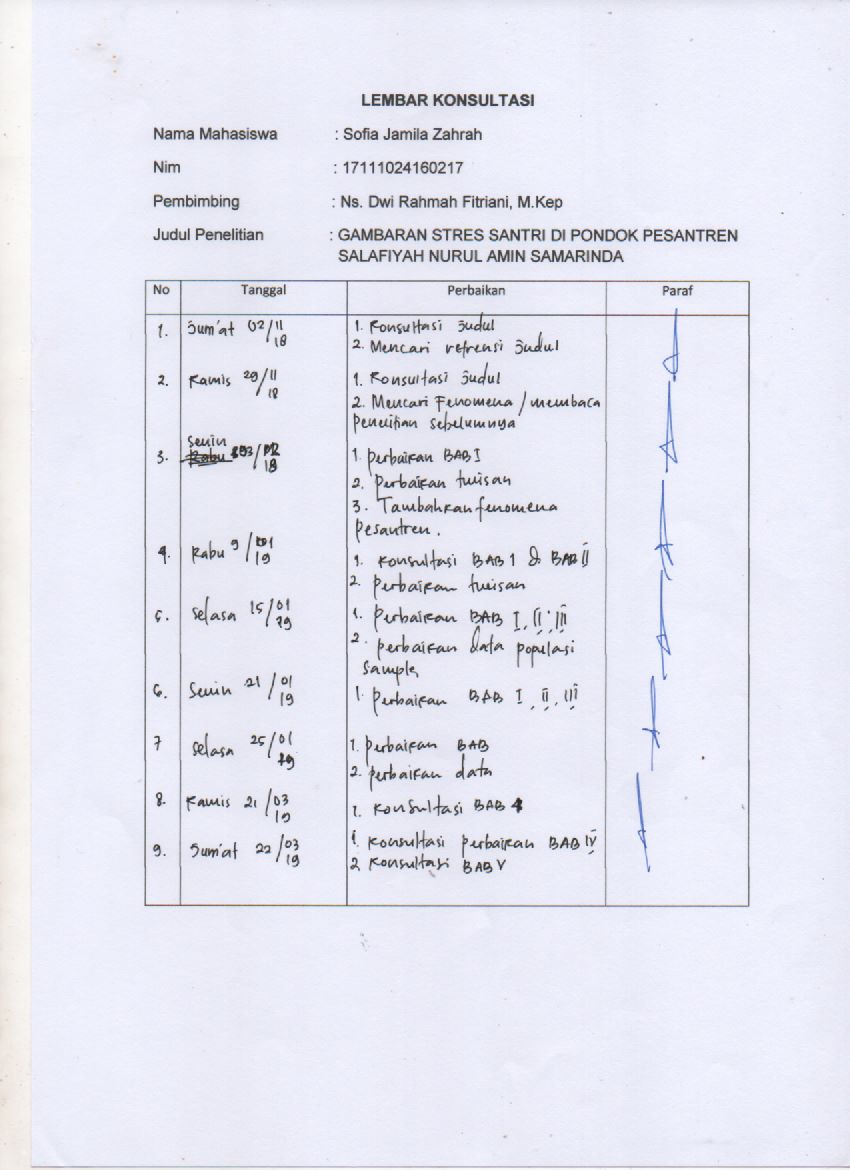 LEMBAR KONSULTASI
Nama Mahasiswa : Sofia Jamila Zahrah
Nim : 17111024160217
Pembimbing : Ns. Dwi Rahmah Fitriani, M.Kep
Judul Penelitian : GAMBARAN STRES SANTRI DI PONDOK PESANTREN
SALAFIYAH NURUL AMIN SAMARINDA
No Tanggal Perbaikan Paraf
1. Jum'at 02/11 18 1. Konsultasi Judul
2. Mencari refrensi Judul
2. Kamis 29/11 18 1. Konsultasi Judul
2. Mencari Fenomena / membaca
Penelitian sebelumnya
3. Senin Rabu 03/12 18 1. Perbaikan BAB I
2. Perbaikan tulisan
3. Tambahkan fenomena
Pesantren.
4. Rabu 9/01 19 1. Konsultasi BAB 1 & BAB II
2. Perbaikan tulisan
5. Selasa 15/01 19 1. Perbaikan BAB I, II, III
2. perbaikan data populasi
sample
6. Senin 21/01 19 1. Perbaikan BAB I, II, III
7 Selasa 25/01 19 1. Perbaikan BAB
2. perbaikan data
8. Kamis 21/03 19 1. Konsultasi BAB 4
9. Jum'at 22/03 19 1. Konsultasi perbaikan BAB IV
2 Konsultasi BAB V